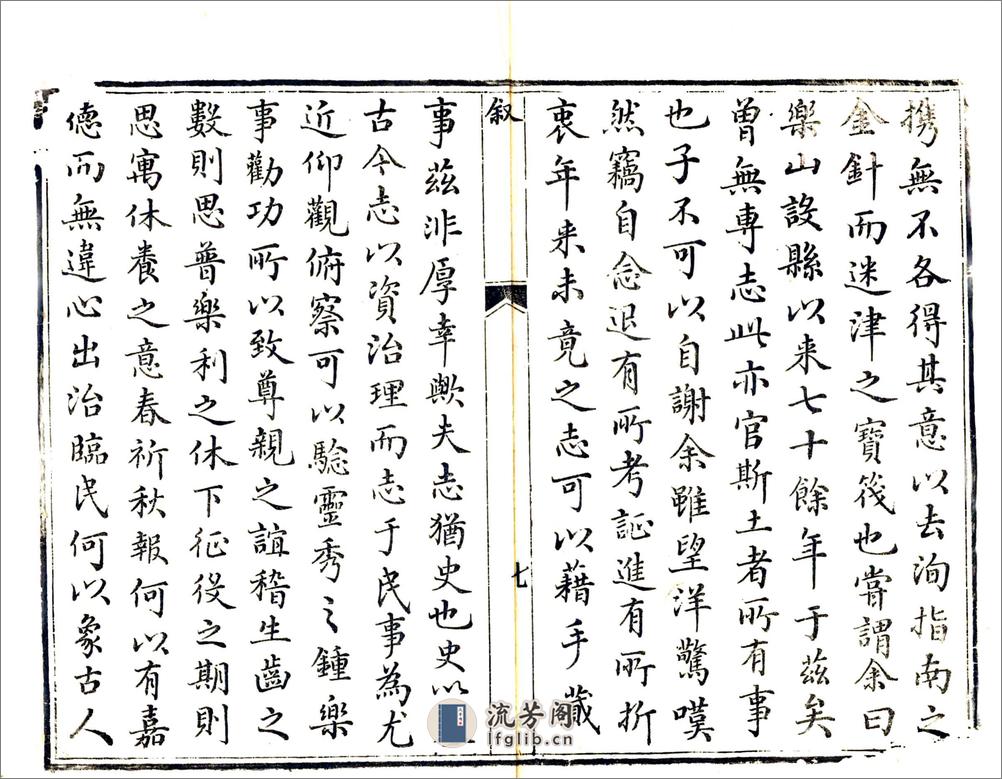 携無不各得其意以去洵指南之
金針而迷津之寶筏也嘗謂余曰
樂山設縣以来七十餘年于茲矣
曾無專志此亦官斯土者所有事
也子不可以自謝余雖望洋驚嘆
然竊自念退有所考証進有所折
衷年来未竟之志可以藉手蕆
叙
七
事茲非厚幸歟夫志猶史也史以
古今志以資治理而志于民事為尤
近仰觀俯察可以驗靈秀之鍾樂
事勸功所以致尊親之誼稽生齒之
數則思普樂利之休下征役之期則
思寓休養之意春祈秋報何以有嘉
德而無違心出治臨民何以象古人
流芳阁
lfglib.cn